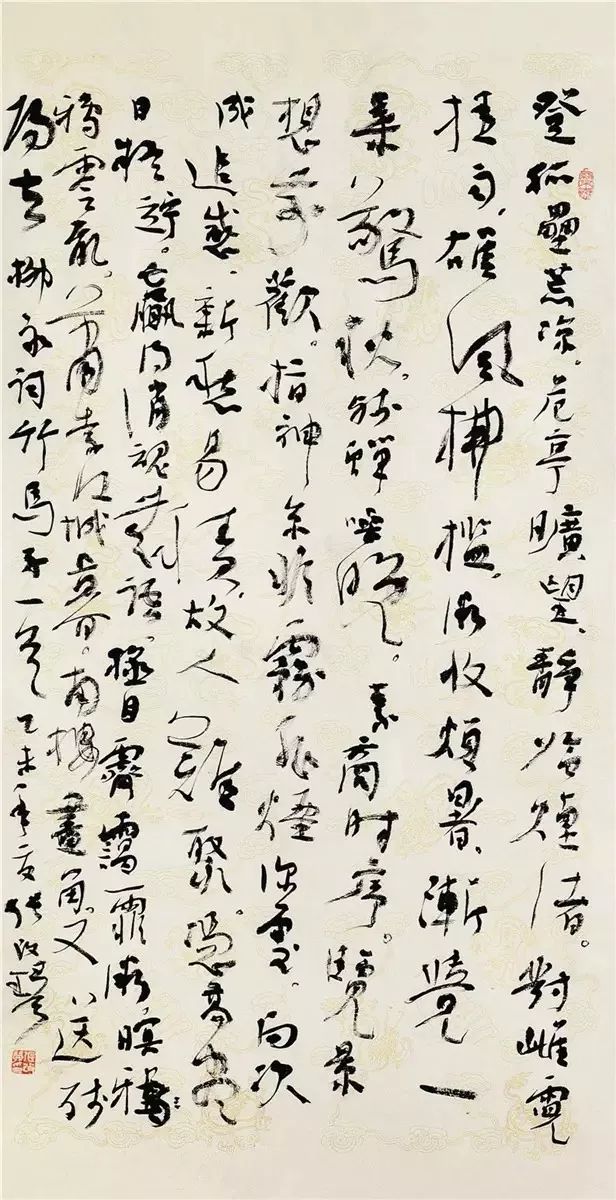 登孤壘荒涼。危亭曠望、靜臨煙渚。對雌霓
挂雨、雄風拂檻、微收煩暑、漸覺一
葉驚秋。殘蟬噪晚。素商時序。覽景
想前歡。指神京非霧非煙深處。向此
成追感、新愁易積、故人難聚。憑高盡
日凝竚。贏得消魂無語、極目霽靄霏微、暝鴉
鴉零亂、蕭索江城暮。南樓畫角又送殘
陽去 柳永詞竹馬子一首 乙未年夏 張改琴